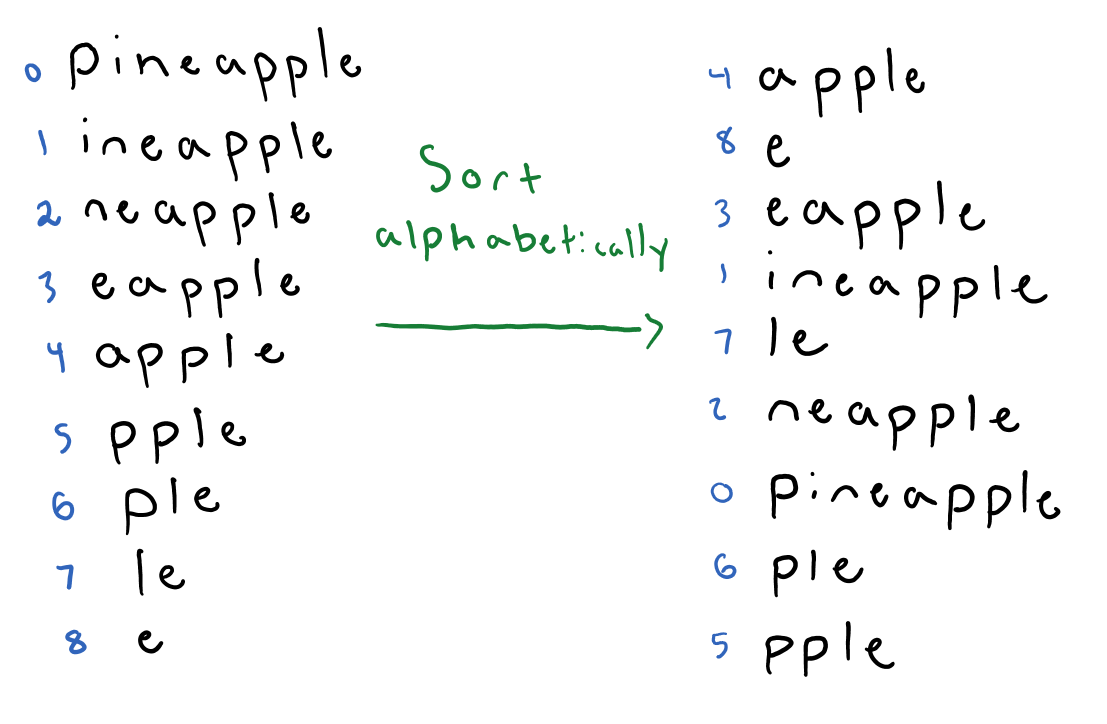 0 pineapple
1 ineapple
2 neapple
3 eapple
4 apple
5 pple
6 ple
7 le
8 e
Sort
alphabetically
4 apple
8 e
3 eapple
1 ineapple
7 le
2 neapple
0 pineapple
6 ple
5 pple